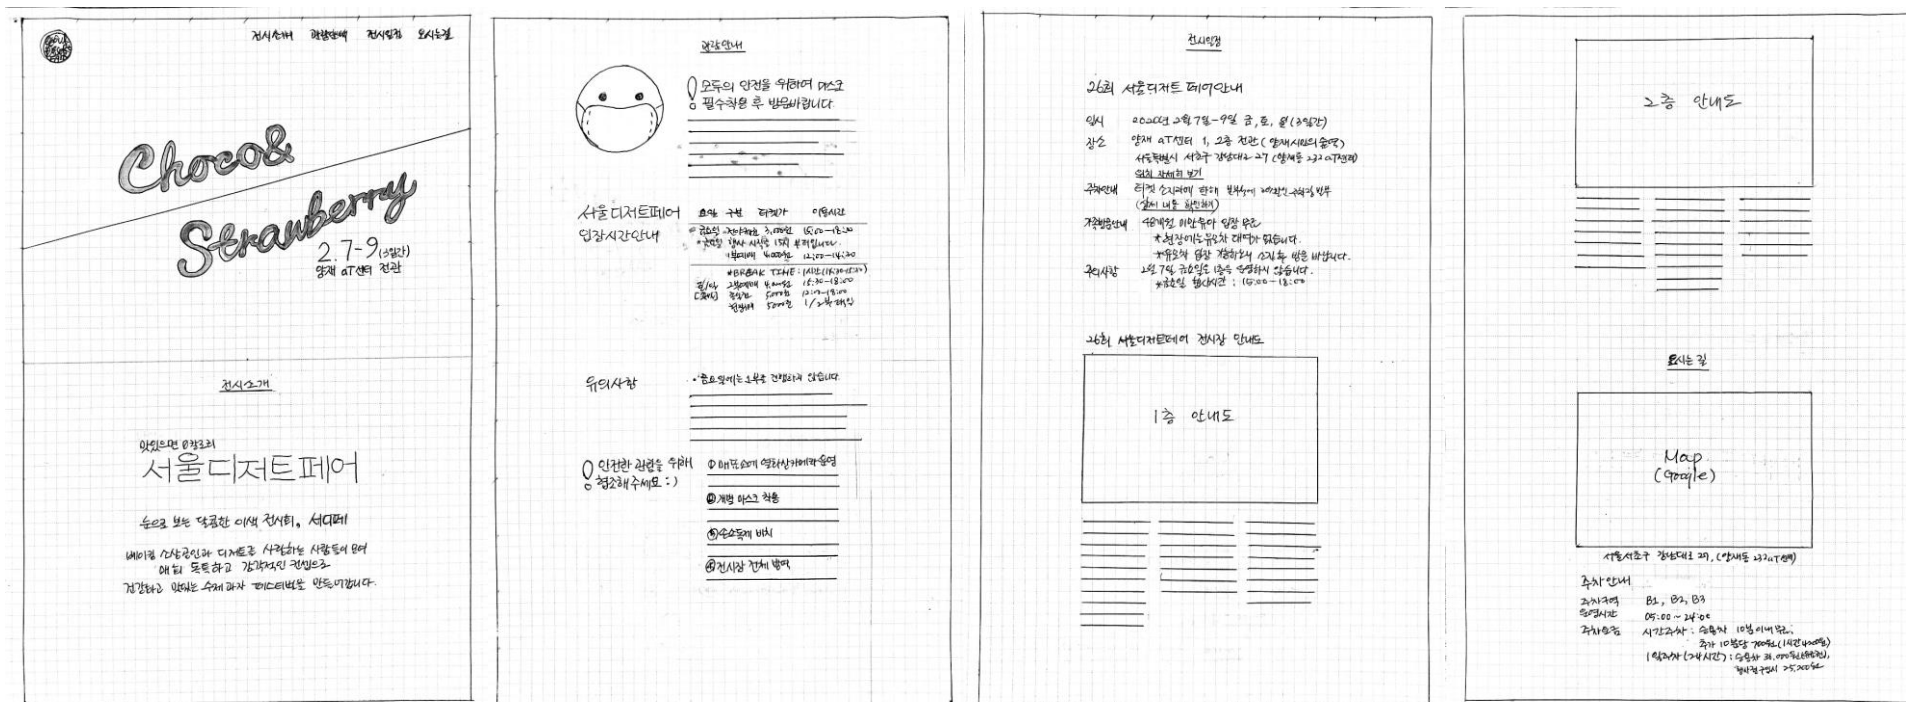 전시소개 관람안내 전시일정 오시는길
Choco&
Strawberry
2.7-9 (3일간)
양재 aT센터 전관
전시소개
맛있으면 0칼로리
서울디저트페어
눈으로 보는 달콤한 이색 전시회, 서디페
베이킹 소상공인과 디저트를 사랑하는 사람들이 모여
매회 독특하고 감각적인 컨셉으로
건강하고 맛있는 수제과자 페스티벌을 만들어갑니다.
관람안내
모두의 안전을 위하여 마스크
필수착용 후 방문바랍니다.
서울디저트페어
입장시간안내
요일 구분 티켓가 이용시간
금요일 3,000원 15:00-18:00
4,000원 12:00-14:30
*BREAK TIME: 1시간
토/일 2부예매 4,000원 15:30-18:00
5,000원 12:00-18:00
현장매 5,000원 1/2부
유의사항
금요일에는 1,2부로 진행하지 않습니다.
안전한 관람을 위해
협조해주세요 :)
① 매표소에 열화상카메라 운영
② 개별 마스크 착용
③ 손소독제 비치
④ 전시장 전체 방역
전시일정
26회 서울디저트페어안내
일시 2020년 2월 7일-9일 금, 토, 일 (3일간)
장소 양재 aT센터 1, 2층 전관 (양재시민의숲역)
서울특별시 서초구 강남대로 27 (양재동 232 aT센터)
위치 자세히 보기
주차안내 티켓 소지자에 한해
(상세 내용 확인하기)
가족방문안내 48개월 미만유아 입장 무료
*현장에는 유모차 대여가 없습니다.
*유모차 입장 가능하오니 소지 후 방문 바랍니다.
주의사항 2월 7일 금요일은 1층을 운영하지 않습니다.
*금요일 행사시간 : 15:00-18:00
26회 서울디저트페어 전시장 안내도
1층 안내도
2층 안내도
오시는 길
Map
(Google)
서울서초구 강남대로 27, (양재동 232 aT센터)
주차안내
주차구역 B1, B2, B3
운영시간 05:00 ~ 24:00
주차요금 시간주차 : 승용차 10분이내 무료,
추가 10분당 700원 (1시간 4,200원)
1일주차 (24시간) : 승용차
25,200원